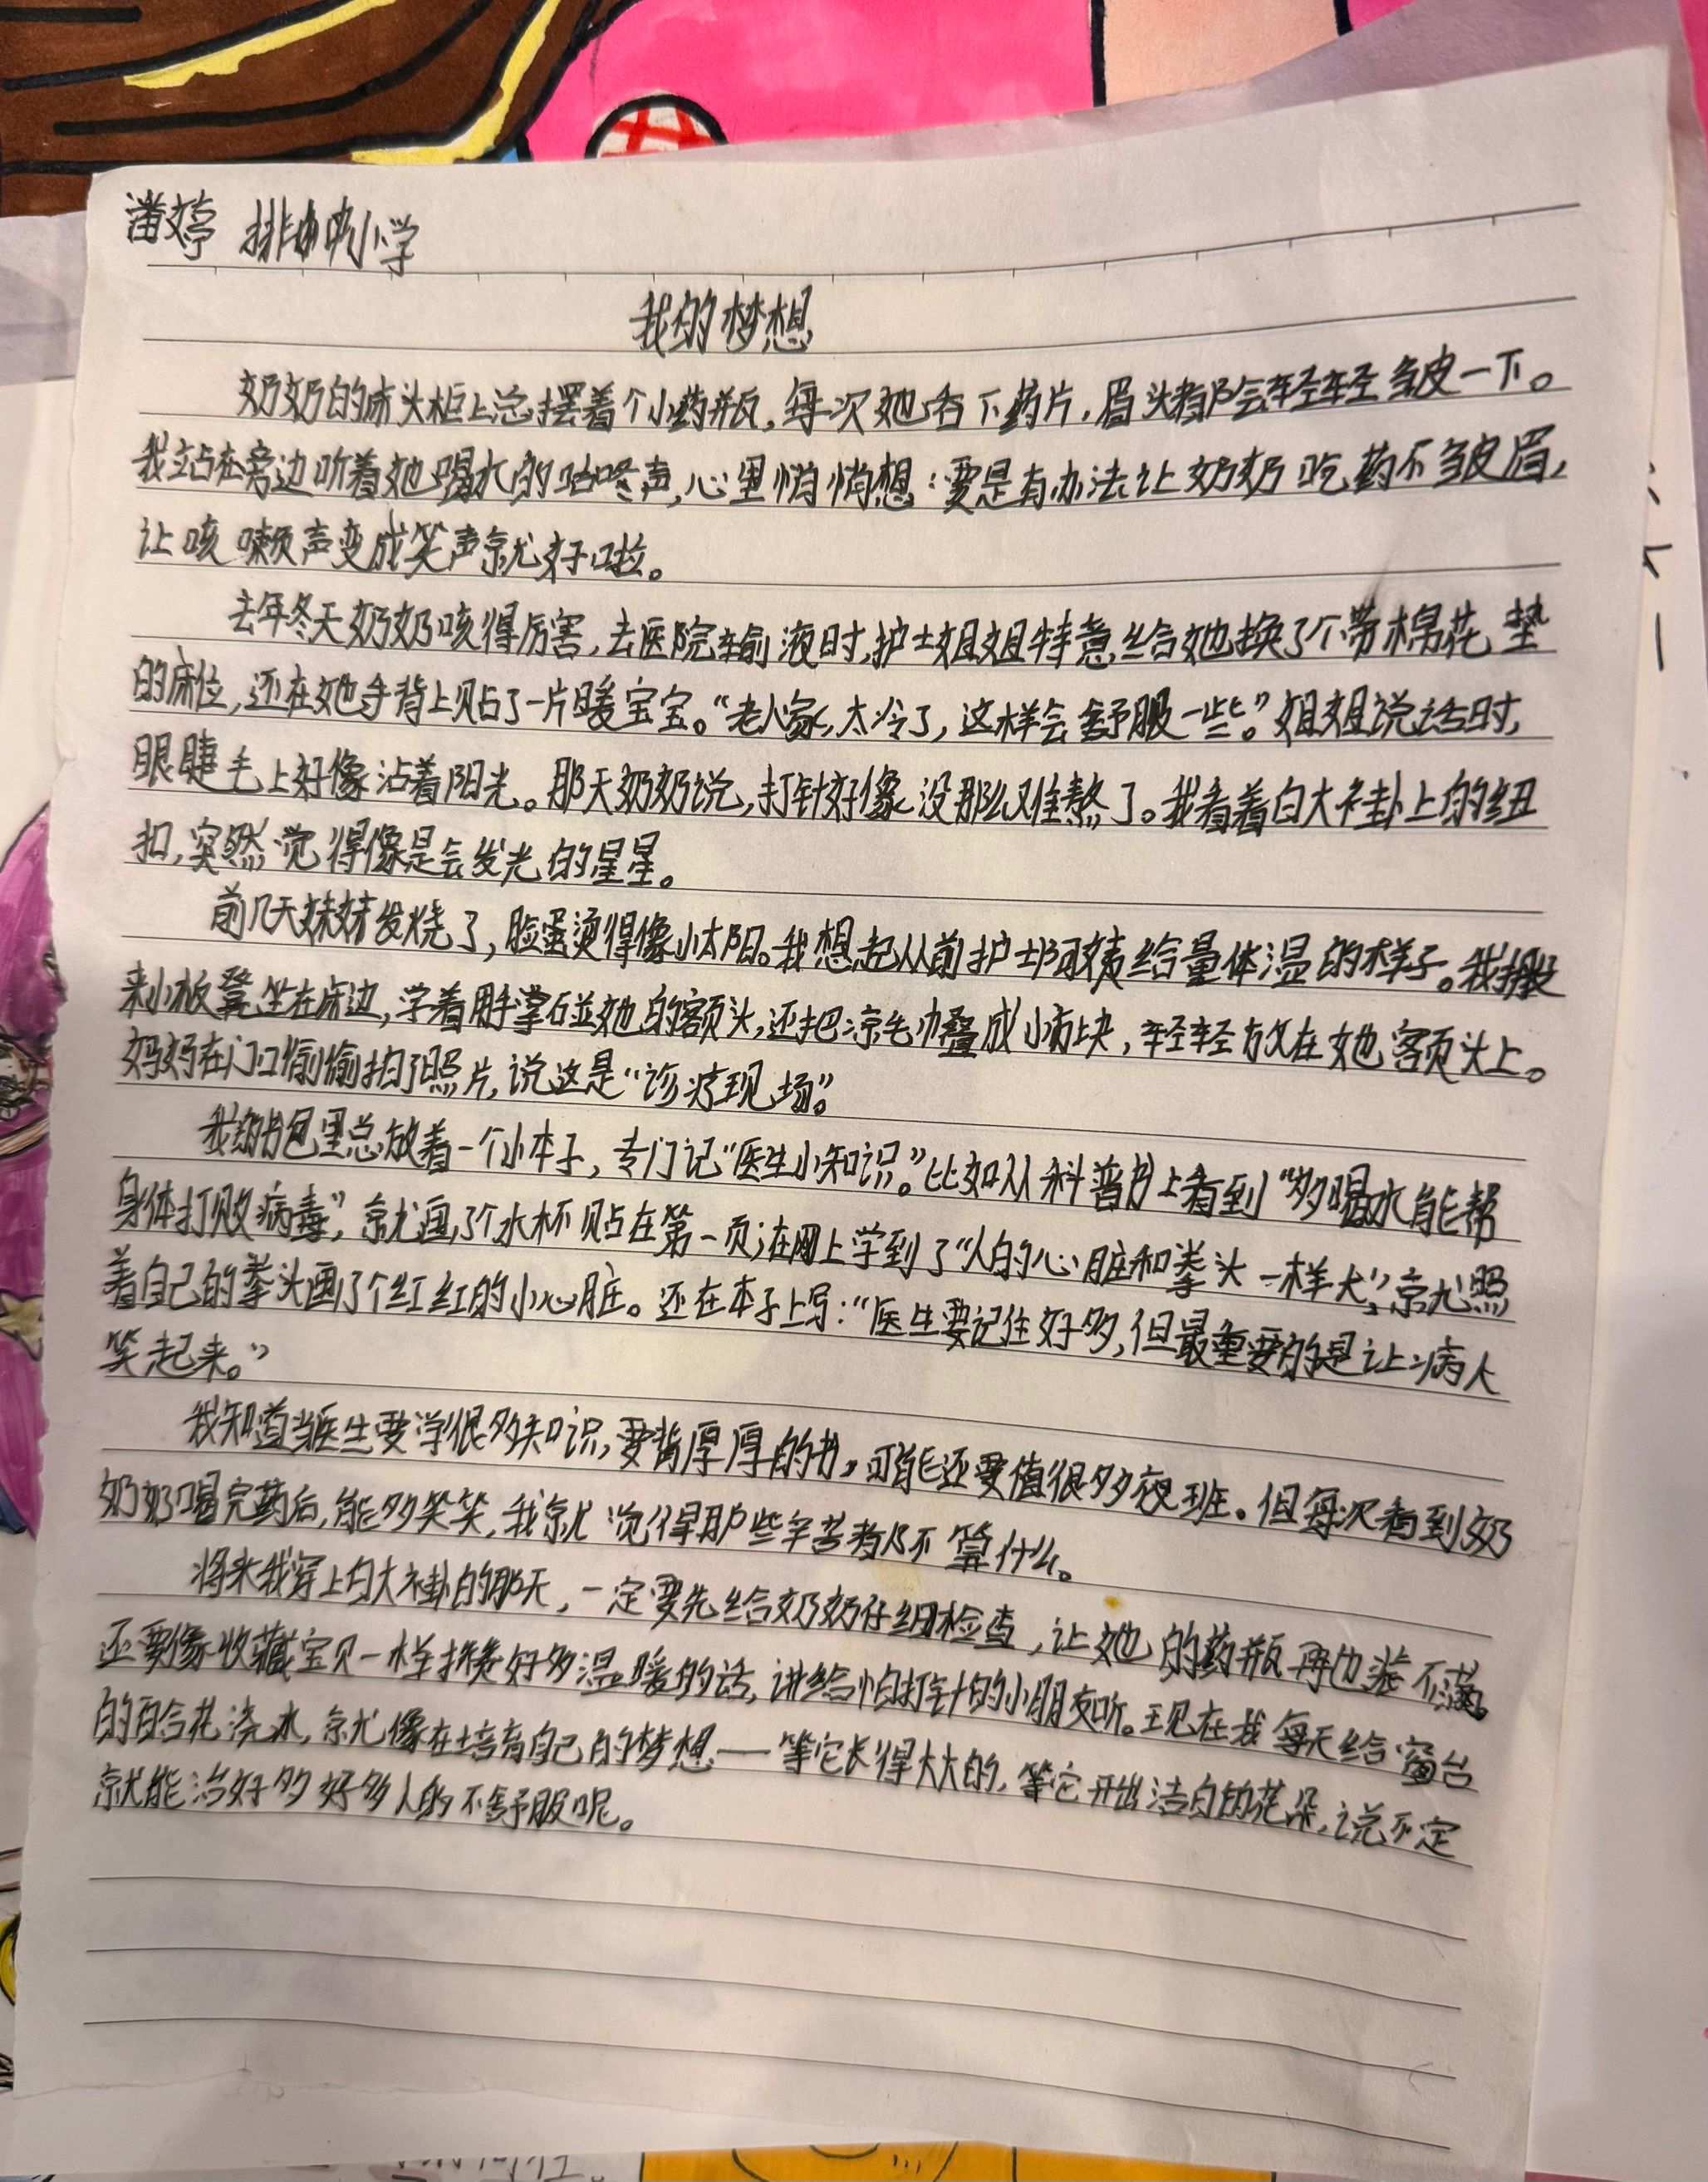 潘婷 排 小学
我的梦想
奶奶的床头柜上总摆着个小药瓶,每次她吞下药片,眉头都会轻轻皱一下。
我站在旁边听着她喝水的咕咚声,心里悄悄想:要是有办法让奶奶吃药不皱眉,
让咳嗽声变成笑声就好啦。
去年冬天奶奶咳得厉害,去医院输液时,护士姐姐特意给她换了个带棉花垫
的床位,还在她手背上贴了一片暖宝宝。“老人家,太冷了,这样会舒服一些。”姐姐说话时,
眼睫毛上好像沾着阳光。那天奶奶说,打针好像没那么难熬了。我看着白大褂上的纽
扣,突然觉得像是会发光的星星。
前几天妹妹发烧了,脸蛋烫得像小太阳。我想起从前护士阿姨给量体温的样子。我搬
来小板凳坐在床边,学着用手掌碰她的额头,还把凉毛巾叠成小方块,轻轻放在她额头上。
妈妈在门口偷偷拍了照片,说这是“诊疗现场”。
我的书包里总放着一个小本子,专门记“医生小知识。”比如从科普书上看到“多喝水能帮
身体打败病毒”,就画了个水杯贴在第一页;在网上学到了“人的心脏和拳头一样大”,就照
着自己的拳头画了个红红的小心脏。还在本子上写:“医生要记住好多,但最重要的是让病人
笑起来。”
我知道当医生要学很多知识,要背厚厚的书,可能还要值很多夜班。但每次看到奶
奶奶喝完药后,能多笑笑,我就觉得那些辛苦都不算什么。
将来我穿上白大褂的那天,一定要先给奶奶仔细检查,让她的药瓶再也装不满。
还要像收藏宝贝一样攒好多温暖的话,讲给怕打针的小朋友听。现在我每天给窗台
的百合花浇水,就像在培育自己的梦想——等它长得大大的,等它开出洁白的花朵,说不定
就能治好多好多人的不舒服呢。